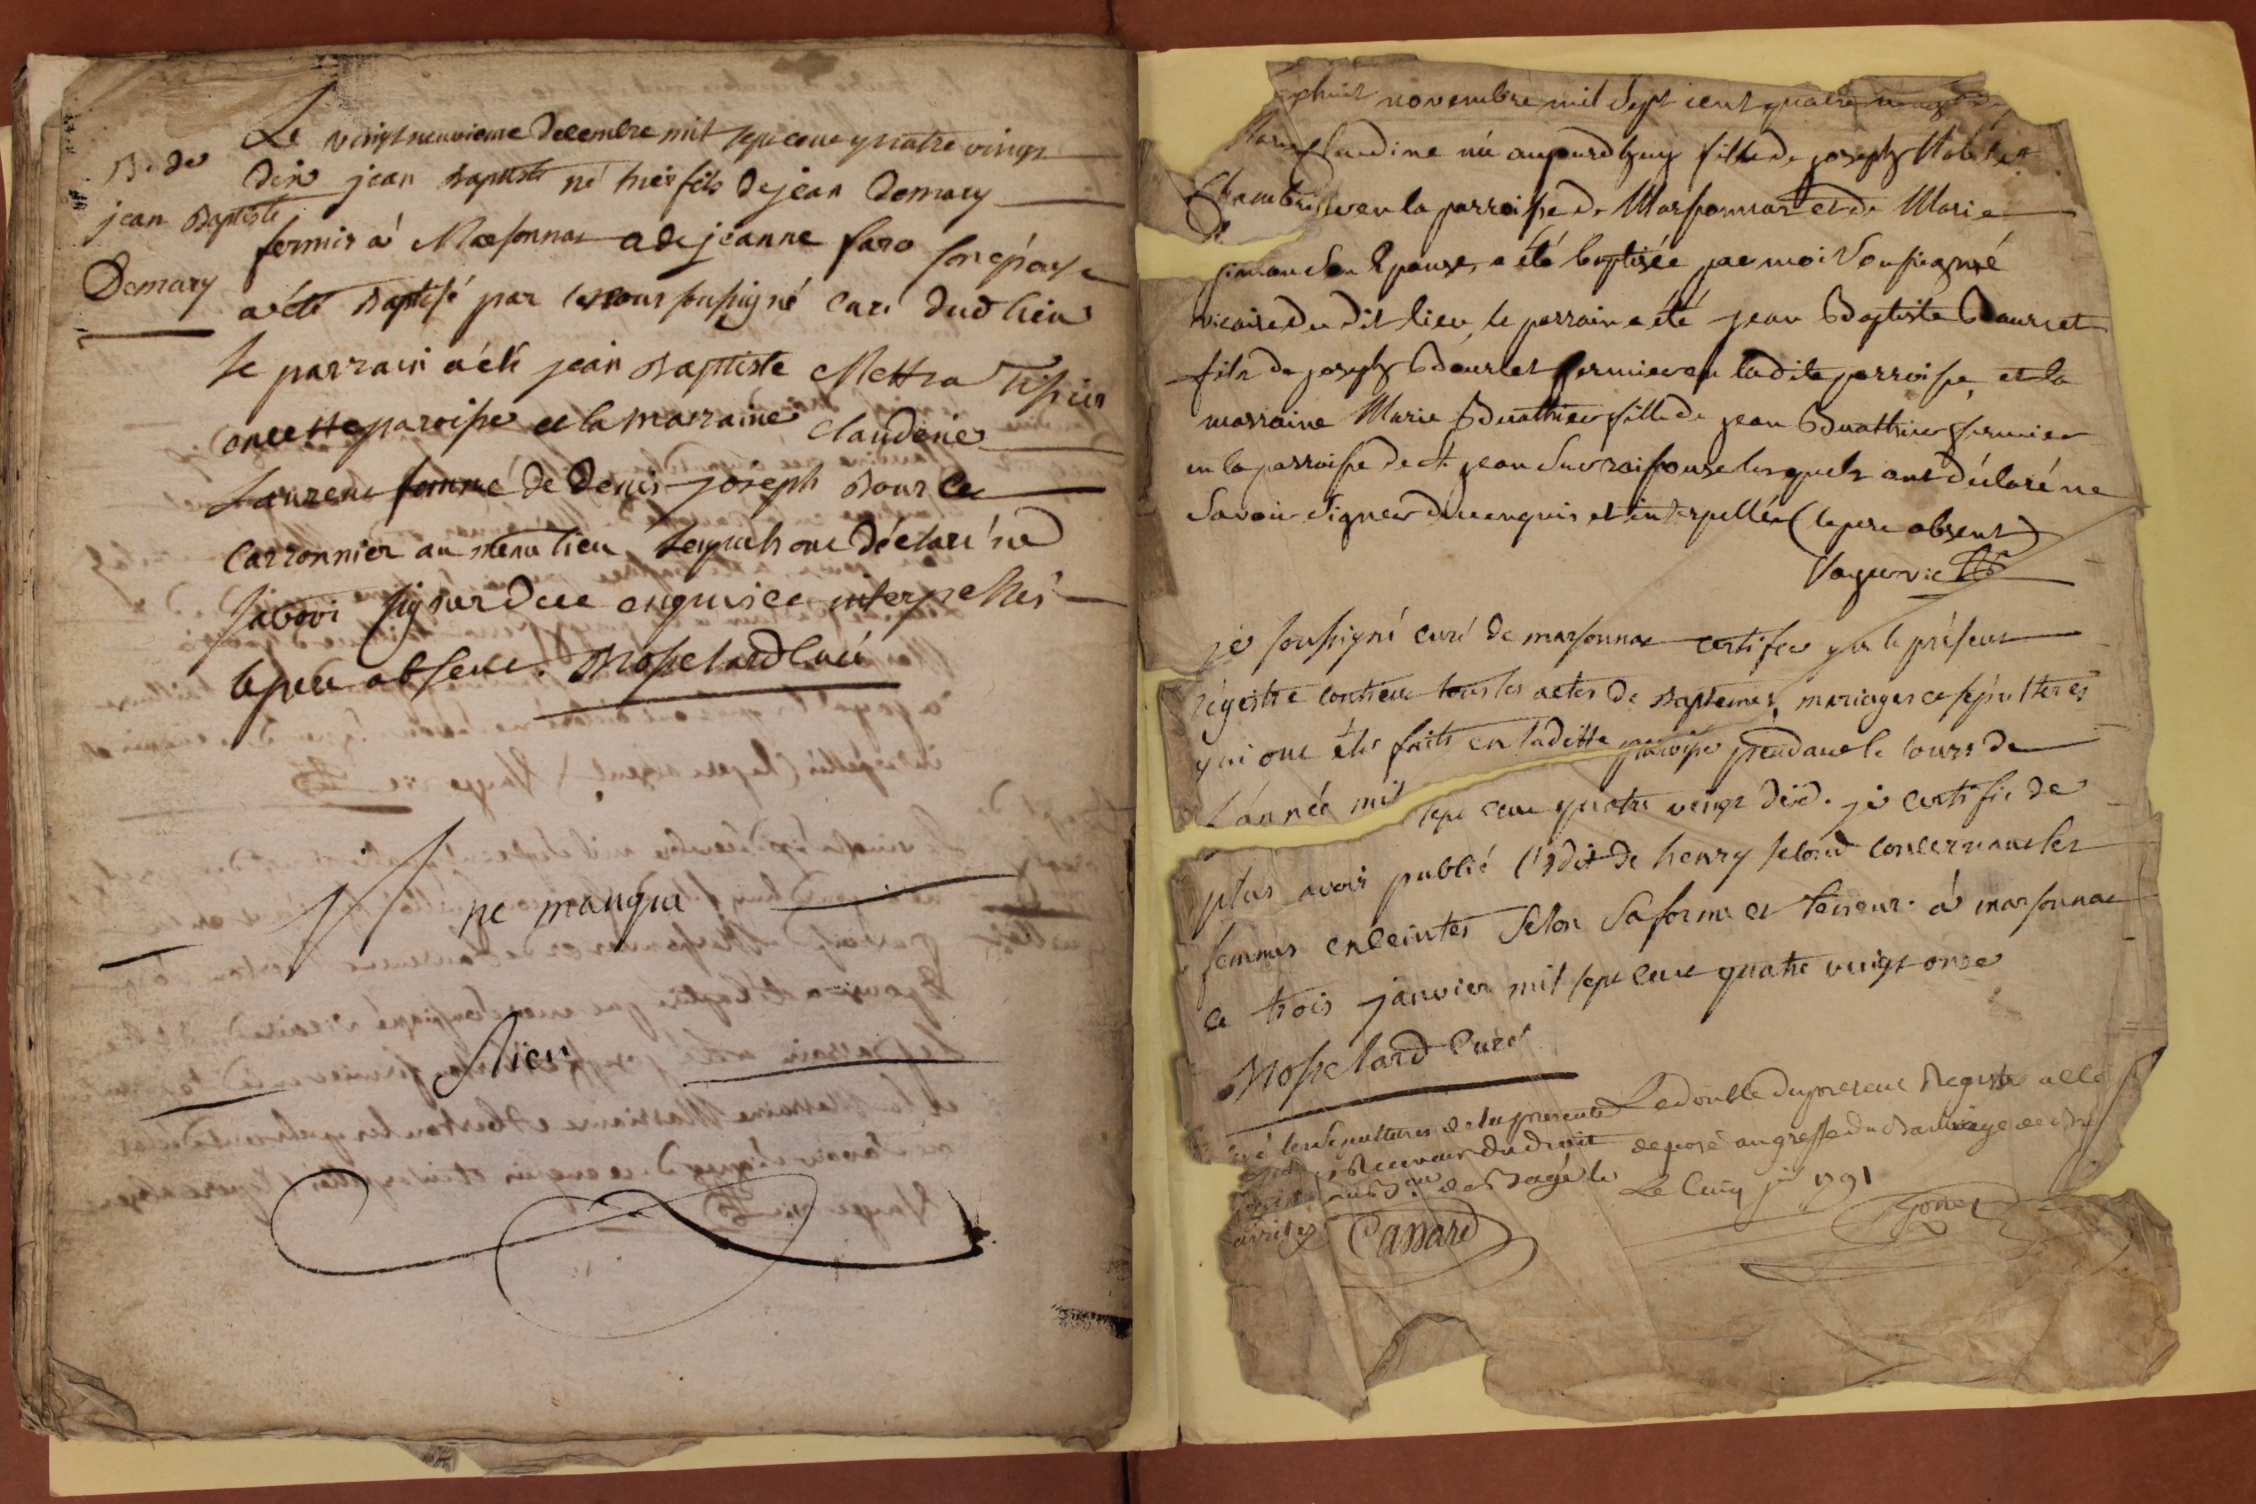 Le vingt neuvieme decembre mil sept cent quatre vingt
B. de
dix jean Baptiste né hier fils de jean Demary
jean Baptiste
fermier à Marsonnas & de jeanne faro son épouse
Demary
a été Baptisé par nous soussigné curé dud lieu
le parrain a été jean Baptiste Mettra
en cette paroisse et la marraine Claudene
Laurent femme de Denis joseph Bourcet
Carronnier au même lieu lesquels ont déclaré ne
savoir signer de ce enquis et interpellés
le père absent. Mosselard curé
Ne manque
Rien
novembre mil Sept cent quatre vingt
Claudine née aujourd'huy fille de joseph
en la parroisse de Marsonnas et de Marie
son Epouse, a été baptisée par moi Soussigné
vicaire du dit lieu, le parrain a été jean Baptiste Bourcet
fils de joseph Bourcet fermier en la dite parroisse, et la
marraine Marie Buathier fille de jean Buathier fermier
en la parroisse de St. jean Sur raissouse lesquels ont déclaré ne
Savoir Signer de ce enquis et interpellés (le pere absent)
Vayer vic
je soussigné curé de marsonnas certifie que le présent
régistre contient tous les actes de Baptêmes, mariages et sépultures
qui ont été faits en laditte paroisse pendant le cours de
l'année mil sept cent quatre vingt dix. je certifie de
plus avoir publié l'édit de henry second concernant les
femmes enceintes selon sa forme et teneur. à marsonnas
ce trois janvier mil sept cent quatre vingt onze
Mosselard Curé
les Sepultures de la presente
Receveur du droit
de Bagé le
Cassard
Le double du present Registre a été
deposé au greffe du Bailliage de
Le Cinq 1791